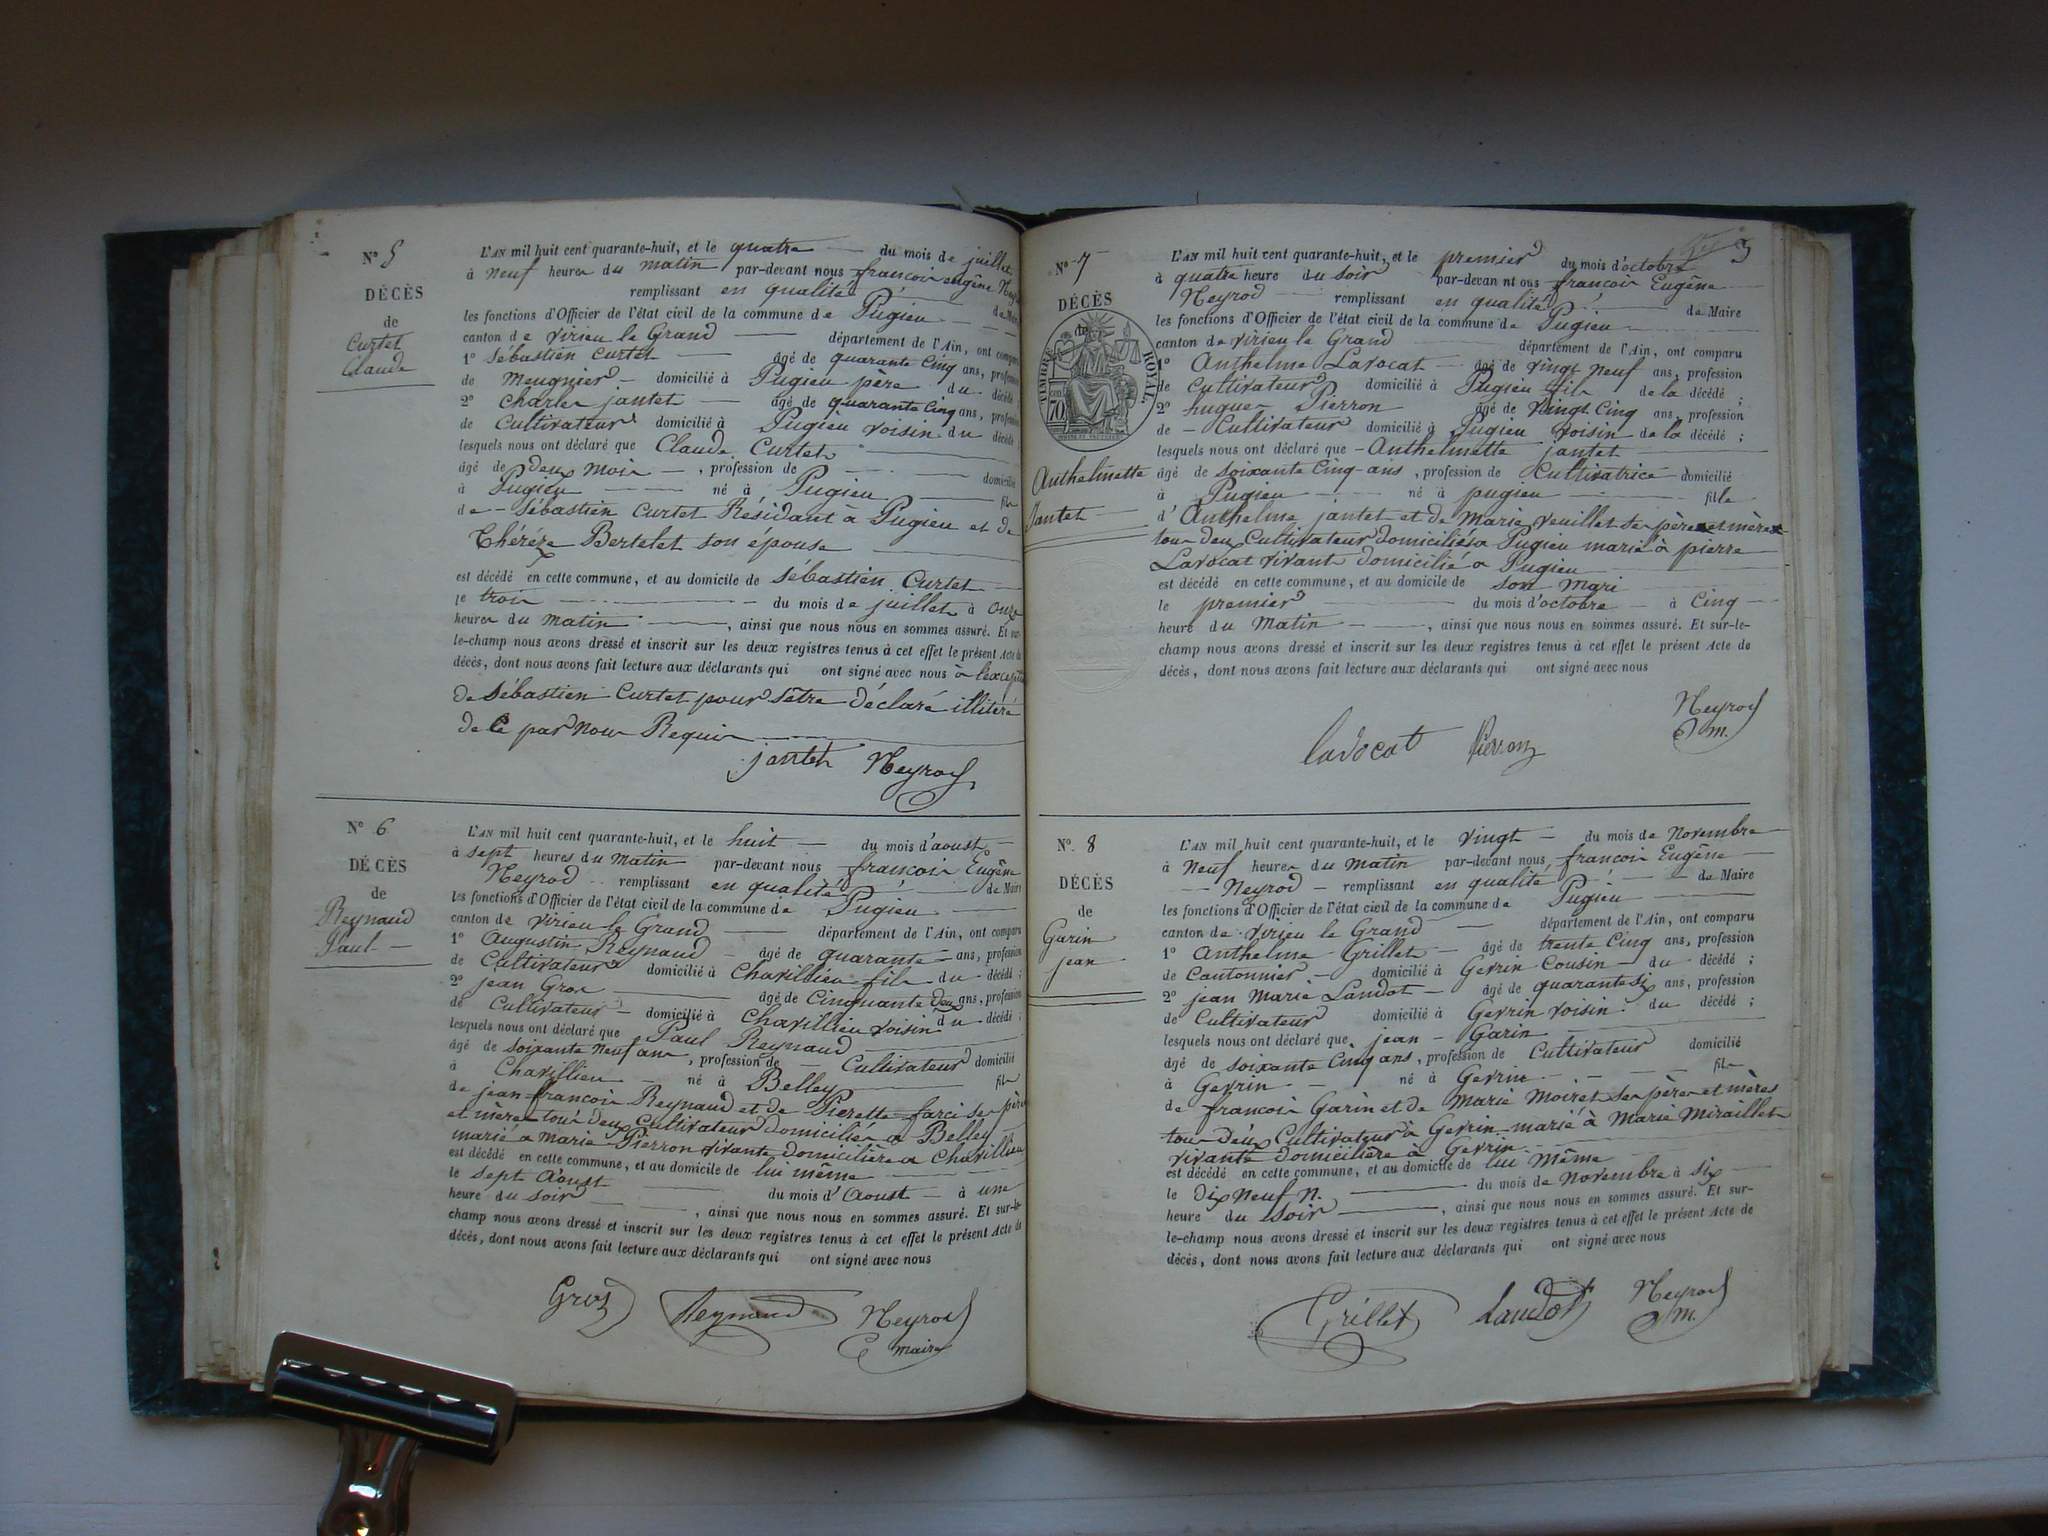 N° 5
DÉCÈS
de
Curtet
Claude
L'AN mil huit cent quarante-huit, et le quatre du mois de juillet
à neuf heures du matin par-devant nous françois eugène
remplissant en qualité de Maire
les fonctions d'Officier de l'état civil de la commune de Pugieu
canton de virieu le Grand département de l'Ain, ont comparu
1° Sébastien Curtet âgé de quarante cinq ans, profession
de Meugnier domicilié à Pugieu père du décédé
2° Charles jantet âgé de quarante cinq ans, profession
de Cultivateur domicilié à Pugieu voisin du décédé
lesquels nous ont déclaré que Claude Curtet
âgé de deux mois , profession de domicilié
à Pugieu né à Pugieu fils
de Sébastien Curtet Résidant à Pugieu et de
Thérèze Bertelet son épouse
est décédé en cette commune, et au domicile de Sébastien Curtet
le trois du mois de juillet à onze
heures du matin , ainsi que nous nous en sommes assuré. Et sur
le-champ nous avons dressé et inscrit sur les deux registres tenus à cet effet le présent Acte de
décès, dont nous avons fait lecture aux déclarants qui ont signé avec nous à l'exception
de Sébastien Curtet pour s'être déclaré illitéré
de ce par nous Requis
jantet Neyrod
N° 6
DÉCÈS
de
Reynaud
Paul
L'AN mil huit cent quarante-huit, et le huit du mois d'aoust
à sept heures du matin par-devant nous françois Eugène
Neyrod remplissant en qualité de Maire
les fonctions d'Officier de l'état civil de la commune de Pugieu
canton de virieu le Grand département de l'Ain, ont comparu
1° Augustin Reynaud âgé de quarante ans, profession
de Cultivateur domicilié à Chavillieu fils du décédé ;
2° jean Gros âgé de Cinquante deux ans, profession
de Cultivateur domicilié à Chavillieu voisin du décédé ;
lesquels nous ont déclaré que Paul Reynaud
âgé de soixante neuf ans , profession de Cultivateur domicilié
à Chavillieu né à Belley fils
de jean françois Reynaud et de Pierette farci ses père
et mère tous deux Cultivateur domiciliés a Belley
marié a marie Pierron vivante domicilière a Chavillieu
est décédé en cette commune, et au domicile de lui même
le sept Aoust du mois d'Aoust à une
heure du soir , ainsi que nous nous en sommes assuré. Et sur-le-
champ nous avons dressé et inscrit sur les deux registres tenus à cet effet le présent Acte de
décès, dont nous avons fait lecture aux déclarants qui ont signé avec nous
Gros Reynaud Neyrod
maire
3
N° 7
DÉCÈS
de
TIMBRE ROYAL
70
Anthelmette
Jantet
L'AN mil huit cent quarante-huit, et le premier du mois d'octobre
à quatre heure du soir par-devan nt ous françois Eugène
Neyrod remplissant en qualité de Maire
les fonctions d'Officier de l'état civil de la commune de Pugieu
canton de virieu le Grand département de l'Ain, ont comparu
1° Anthelme Lavocat âgé de vingt neuf ans, profession
de Cultivateur domicilié à Pugieu fils de la décédé ;
2° hugues Pierron âgé de vingt Cinq ans, profession
de Cultivateur domicilié à Pugieu voisin de la décédé ;
lesquels nous ont déclaré que Anthelmette jantet
âgé de soixante Cinq ans , profession de Cultivatrice domicilié
à Pugieu né à pugieu fille
d'Anthelme jantet et de Marie veuillet ses père et mère
tous deux Cultivateur domiciliés a Pugieu marié à pierre
Lavocat vivant domicilié a Pugieu
est décédé en cette commune, et au domicile de son mari
le premier du mois d'octobre à cinq
heure du Matin , ainsi que nous nous en sommes assuré. Et sur-le-
champ nous avons dressé et inscrit sur les deux registres tenus à cet effet le présent Acte de
décès, dont nous avons fait lecture aux déclarants qui ont signé avec nous
Lavocat Pierron Neyrod
m.
N°. 8
DÉCÈS
de
Garin
jean
L'AN mil huit cent quarante-huit, et le vingt du mois de novembre
à Neuf heures du matin par-devant nous françois Eugène
Neyrod remplissant en qualité de Maire
les fonctions d'Officier de l'état civil de la commune de Pugieu
canton de virieu le Grand département de l'Ain, ont comparu
1° Anthelme Grillet âgé de trente Cinq ans, profession
de Cantonnier domicilié à Gevrin Cousin du décédé ;
2° jean Marie Landot âgé de quarante six ans, profession
de Cultivateur domicilié à Gevrin voisin du décédé ;
lesquels nous ont déclaré que jean Garin
âgé de soixante Cinq ans , profession de Cultivateur domicilié
à Gevrin né à Gevrin fils
de françois Garin et de Marie Moiret ses père et mères
tous deux Cultivateur à Gevrin marié à Marie Miraillet
vivante domicilière à Gevrin
est décédé en cette commune, et au domicile de lui même
le dix Neuf n. du mois de novembre à six
heure du soir , ainsi que nous nous en sommes assuré. Et sur-
le-champ nous avons dressé et inscrit sur les deux registres tenus à cet effet le présent Acte de
décès, dont nous avons fait lecture aux déclarants qui ont signé avec nous
Grillet Landot Neyrod
m.